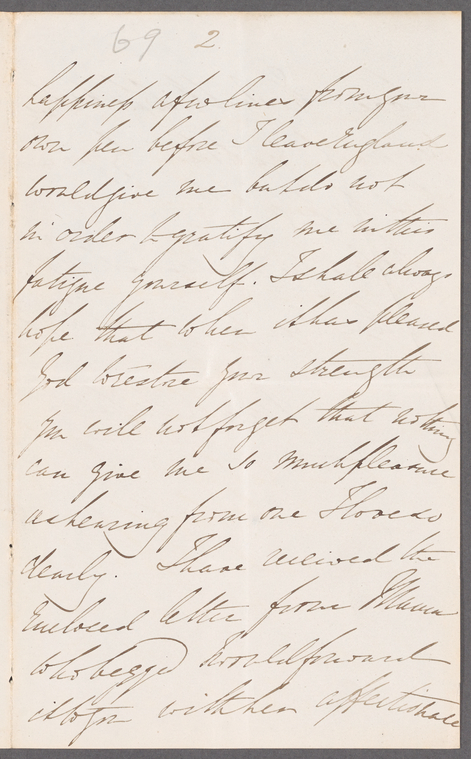 69 2
happiness a few lines from your
own pen before I leave England
would give me but do not
in order to gratify me in this
fatigue yourself. I shall always
hope that when it has pleased
God to restore your strength
you will not forget that nothing
can give me so much pleasure
as hearing from one I love so
dearly. I have received the
enclosed letter from Mama
who begged I would forward
it to you with her affectionate